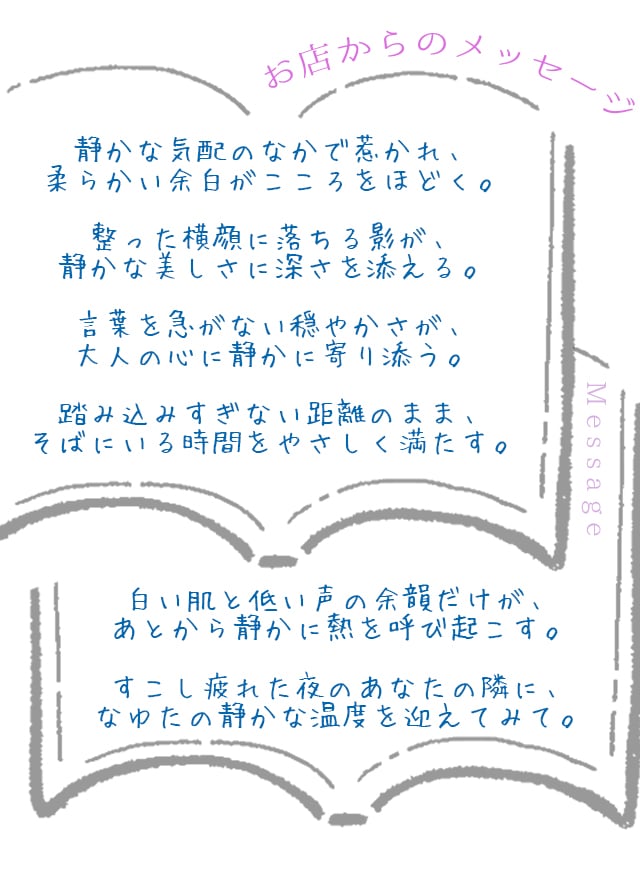 お店からのメッセージ
静かな気配のなかで惹かれ、
柔らかい余白がこころをほどく。
整った横顔に落ちる影が、
静かな美しさに深さを添える。
言葉を急がない穏やかさが、
大人の心に静かに寄り添う。
踏み込みすぎない距離のまま、
そばにいる時間をやさしく満たす。
Message
白い肌と低い声の余韻だけが、
あとから静かに熱を呼び起こす。
すこし疲れた夜のあなたの隣に、
なゆたの静かな温度を迎えてみて。